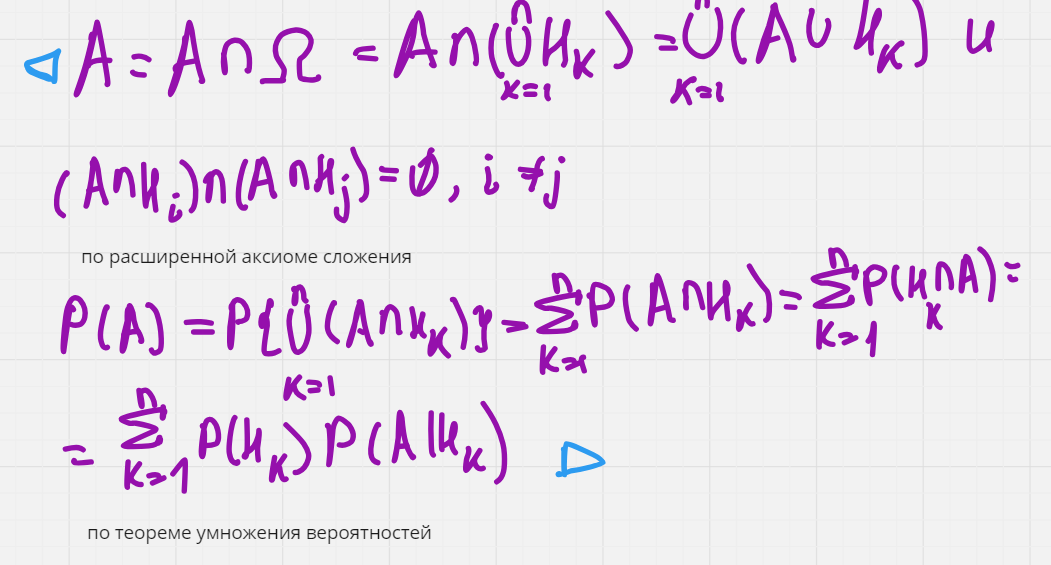 A = A ∩ Ω = A ∩ (⋃ₖ₌₁ⁿ Hₖ) = ⋃ₖ₌₁ⁿ (A ∪ Hₖ) и
(A ∩ Hᵢ) ∩ (A ∩ Hⱼ) = ∅, i ≠ j
по расширенной аксиоме сложения
P(A) = P{⋃ₖ₌₁ⁿ (A ∩ Hₖ)} = ∑ₖ₌₁ⁿ P(A ∩ Hₖ) = ∑ₖ₌₁ⁿ P(Hₖ ∩ A) =
= ∑ₖ₌₁ⁿ P(Hₖ) P(A|Hₖ)
по теореме умножения вероятностей